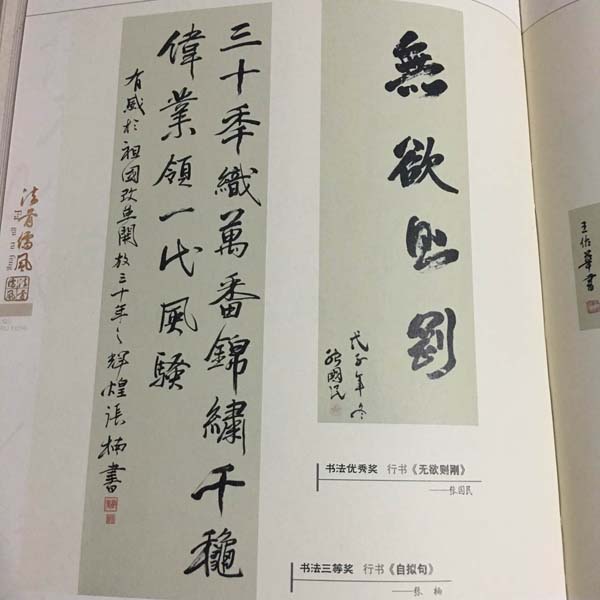 無欲則剛
戊子年冬
張國民
书法优秀奖 行书《无欲则刚》
——张国民
三十季織萬番錦繡千穐
偉業領一代風騷
有感於祖國改革開放三十年之輝煌張楠書
书法三等奖 行书《自拟句》
——张楠
法骨儒风
Fa gu ru feng